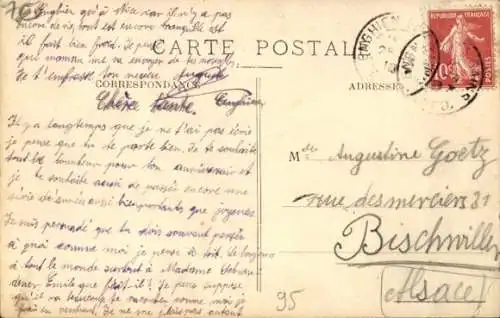 Enghien qu'à Nice car il n'y a pas
encore de vis, tout est encore tranquille et
il fait bien froid. Je pense
que maman me va envoyer de tes nouvelles
Je t'embrasse ton neveu Auguste
CARTE POSTALE
CORRESPONDANCE
ADRESSE
RÉPUBLIQUE FRANÇAISE
POSTES
10c
ENGHIEN
Chère tante. Enghien
Il y a longtemps que je ne t'ai pas écrit
je pense que tu te porte bien. Je te souhaite
tout le bonheur pour ton anniversaire et
je te souhaite aussi de passer encore une
série de années aussi bien portante que joyeuse
Je suis persuadé que tu dois souvent penser
à moi comme moi je pense à toi. le bonjour
à tout le monde surtout à Madame
Emile que fait il? Je pense
qu'il va beaucoup je mais je
fais en Je ne me plais pas autant
Melle Augustine Goetz
rue des merciers 31
Bischwiller
(Alsace)
95